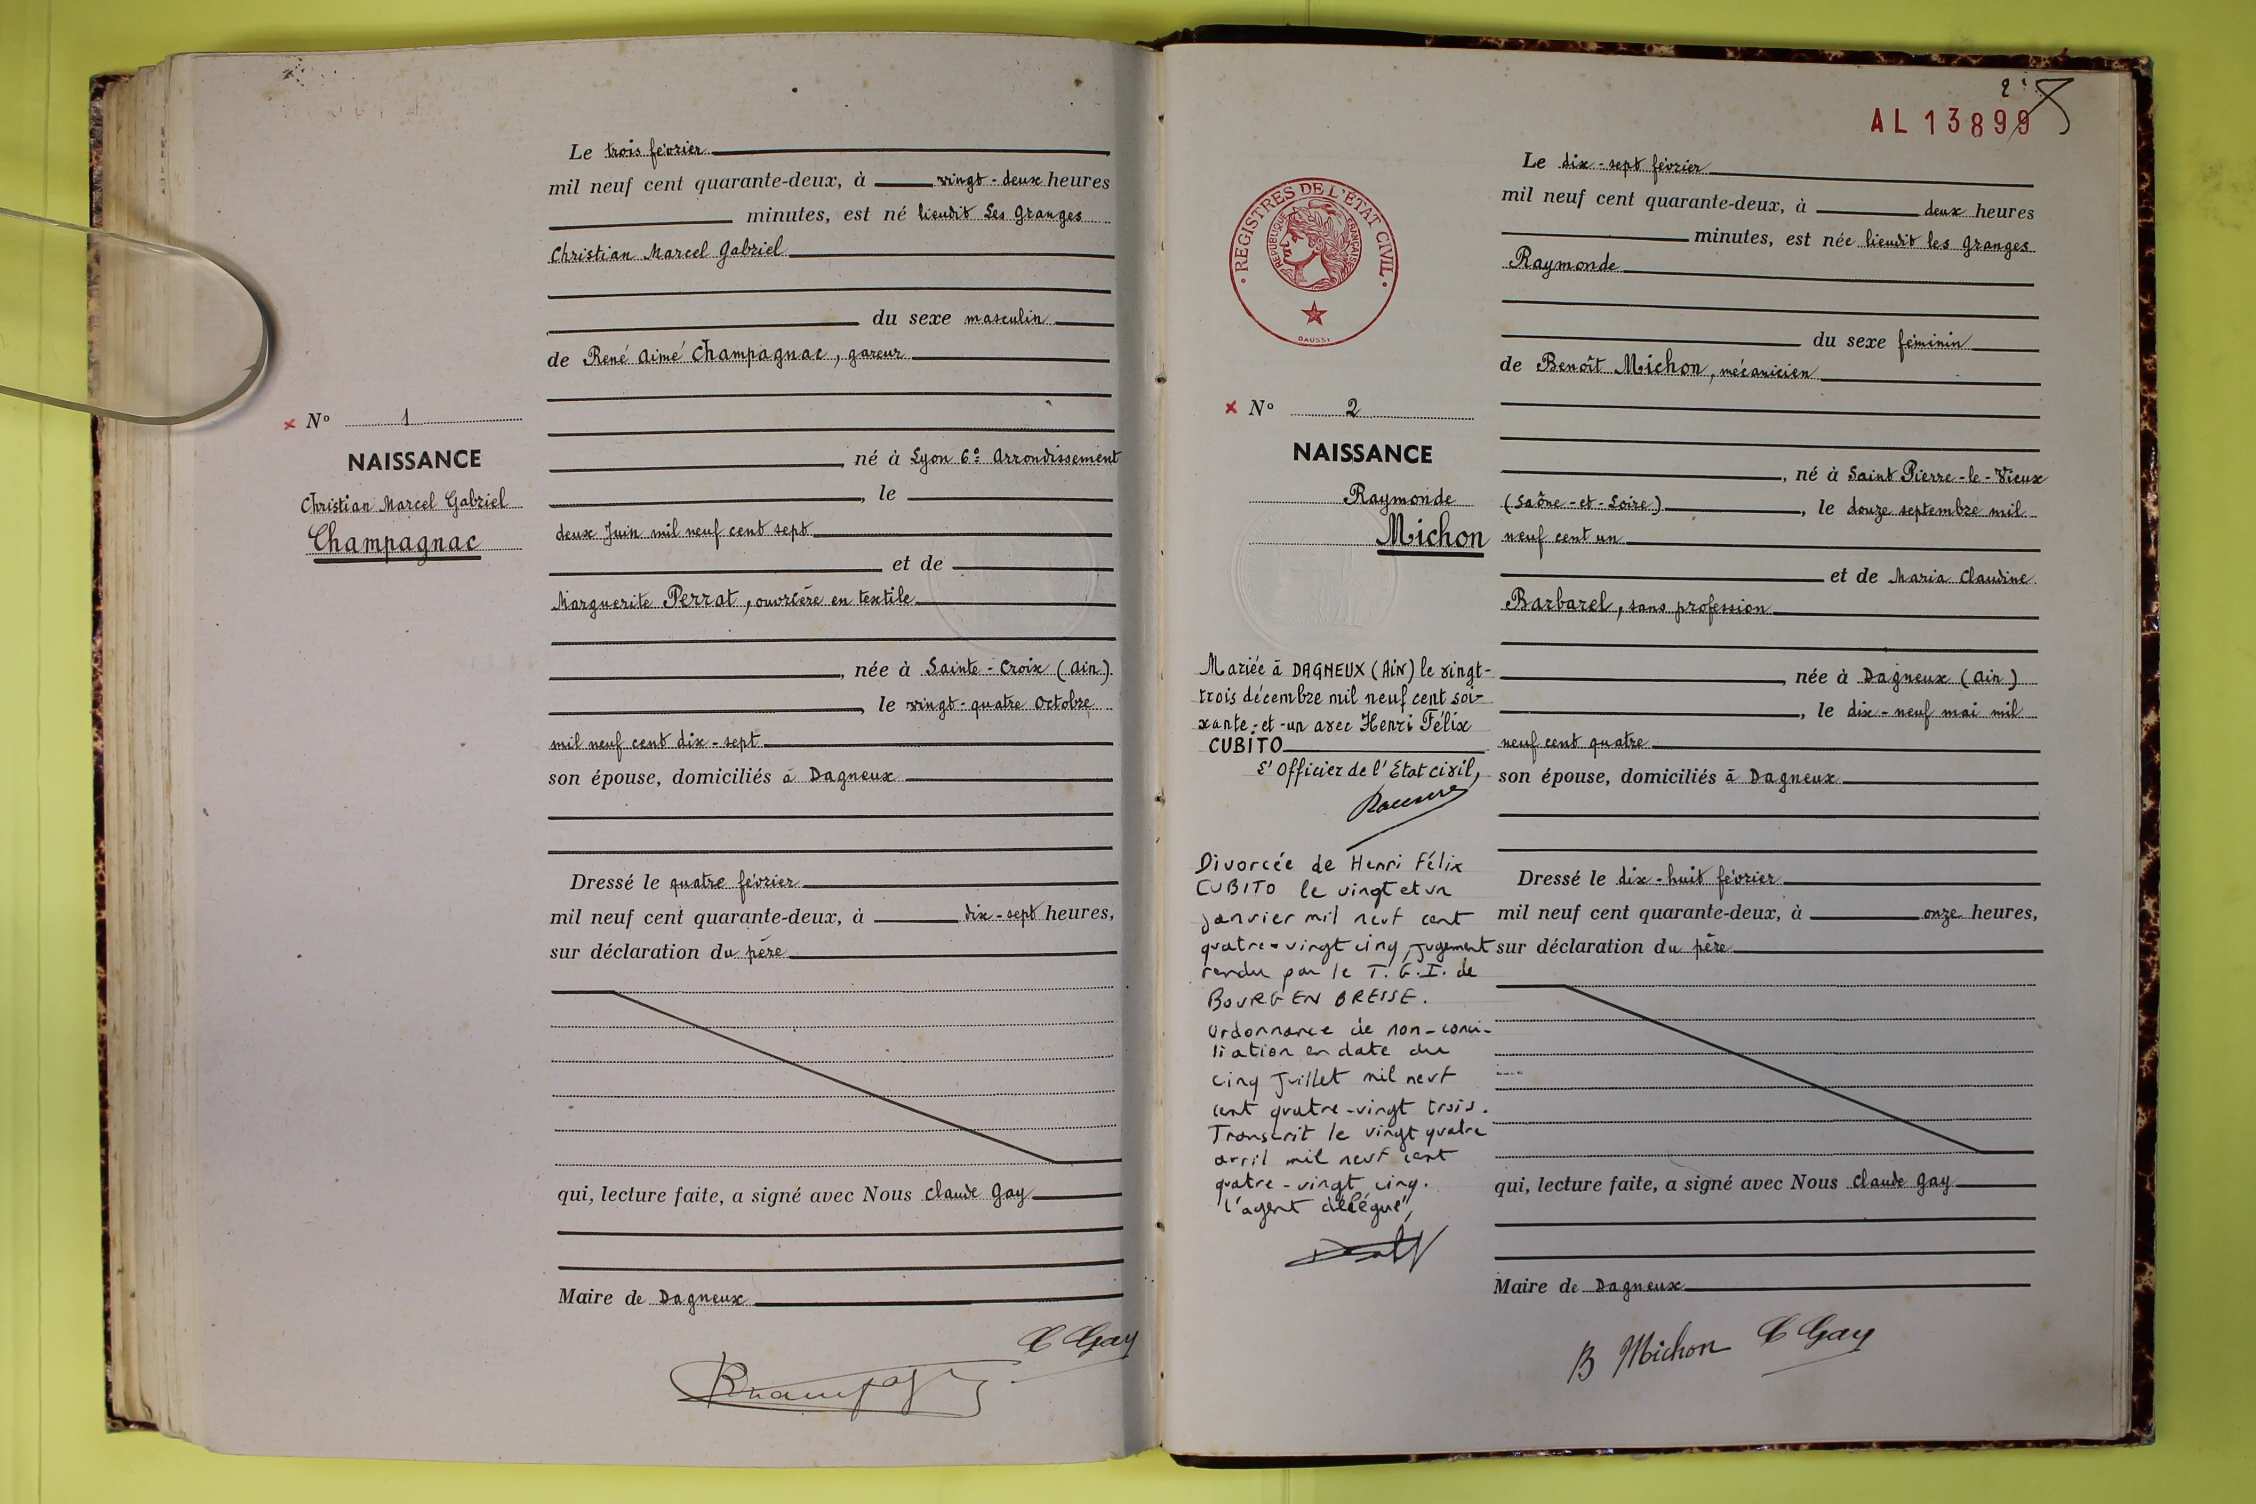 Le trois février
mil neuf cent quarante-deux, à vingt-deux heures
minutes, est né lieudit Les Granges
Christian Marcel Gabriel
du sexe masculin
de René Aimé Champagnac, gareur
Nº 1
NAISSANCE
Christian Marcel Gabriel
Champagnac
, né à Lyon 6e Arrondissement
, le
deux Juin mil neuf cent sept
et de
Marguerite Perrat, ouvrière en textile
, née à Sainte-Croix (Ain)
, le vingt-quatre Octobre
mil neuf cent dix-sept
son épouse, domiciliés à Dagneux
Dressé le quatre février
mil neuf cent quarante-deux, à dix-sept heures,
sur déclaration du père
qui, lecture faite, a signé avec Nous Claude Gay
Maire de Dagneux
C Gay
2
AL 13899
REGISTRES DE L'ÉTAT CIVIL
RÉPUBLIQUE FRANÇAISE
DAUSSY
Le dix-sept février
mil neuf cent quarante-deux, à deux heures
minutes, est née lieudit les Granges
Raymonde
du sexe féminin
de Benoît Michon, mécanicien
Nº 2
NAISSANCE
Raymonde
Michon
, né à Saint Pierre-le-Vieux
(Saône-et-Loire), le douze septembre mil
neuf cent un
et de Maria Claudine
Barbarel, sans profession
, née à Dagneux (Ain)
, le dix-neuf mai mil
neuf cent quatre
son épouse, domiciliés à Dagneux
Dressé le dix-huit février
mil neuf cent quarante-deux, à onze heures,
sur déclaration du père
qui, lecture faite, a signé avec Nous Claude Gay
Maire de Dagneux
B Michon C Gay
Mariée à DAGNEUX (AIN) le vingt-
trois décembre mil neuf cent soi-
xante-et-un avec Henri Félix
CUBITO
L'Officier de l'Etat civil,
Divorcée de Henri Félix
CUBITO le vingt et un
janvier mil neuf cent
quatre-vingt cinq, jugement
rendu par le T.G.I. de
BOURG EN BRESSE.
Ordonnance de non-conci-
liation en date du
cinq Juillet mil neuf
cent quatre-vingt trois.
Transcrit le vingt quatre
avril mil neuf cent
quatre-vingt cinq.
l'agent délégué,